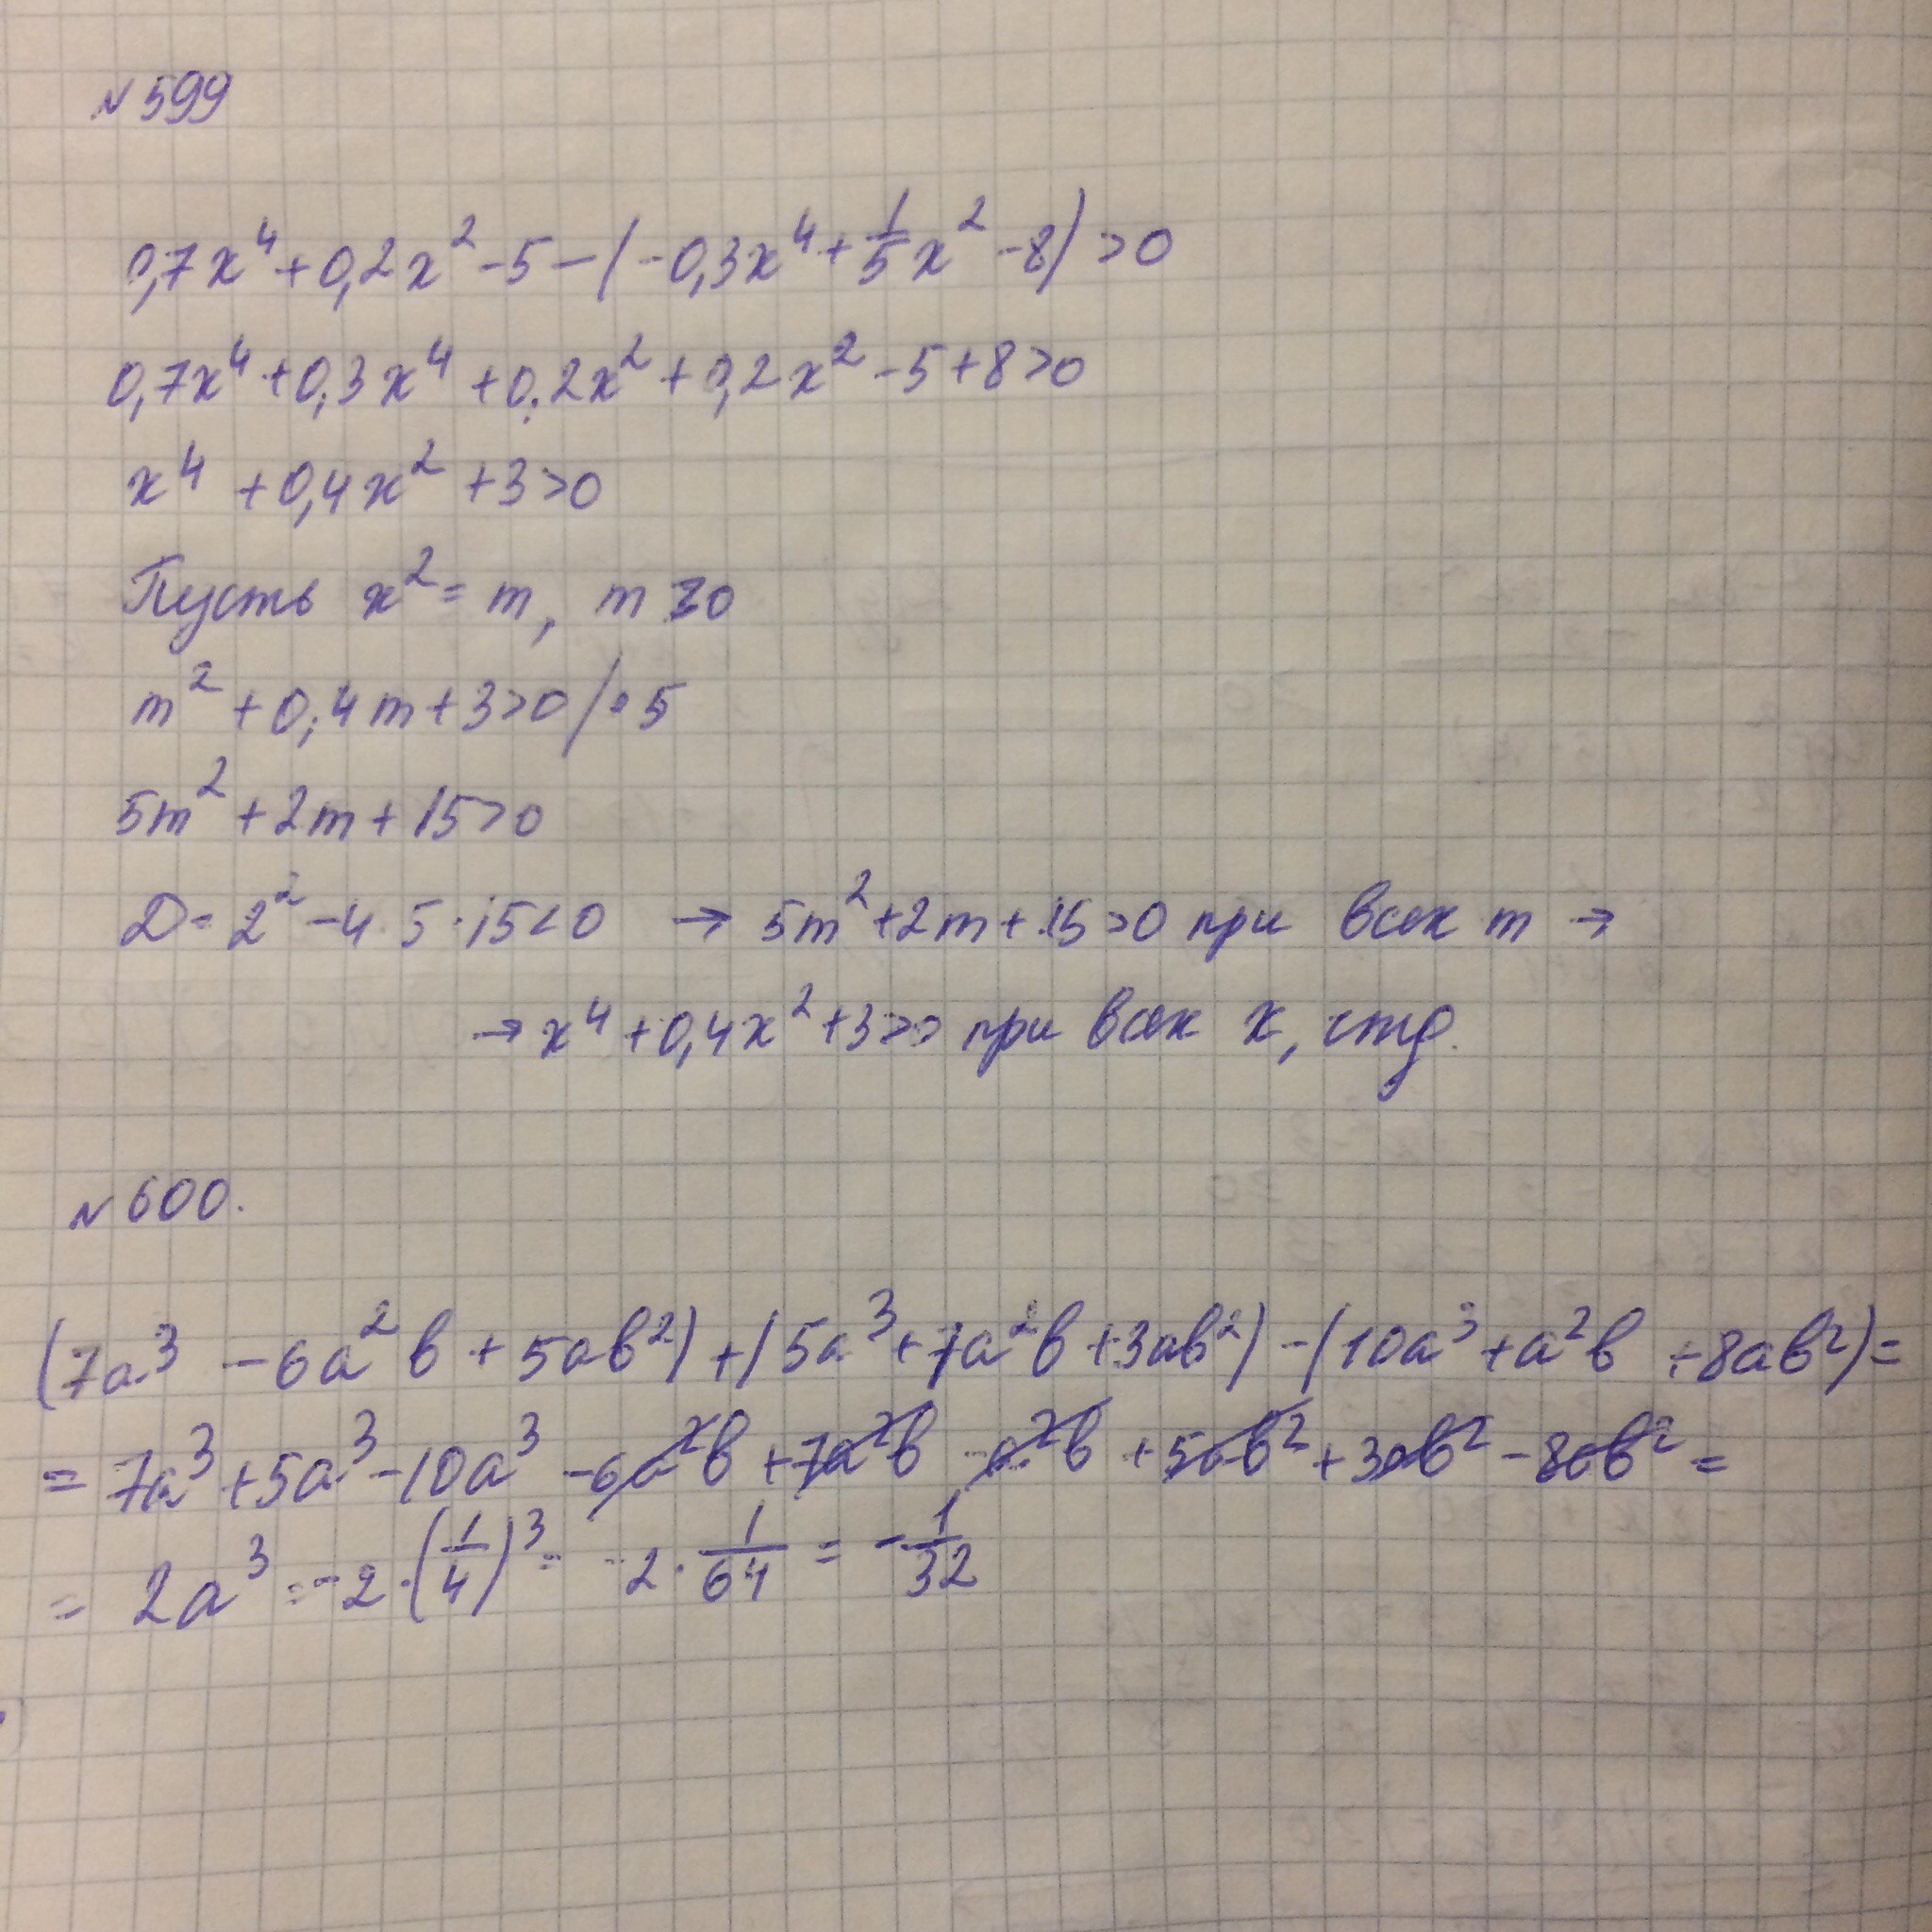 N 599
0,7x⁴ + 0,2x² - 5 - (-0,3x⁴ + 1/5 x² - 8) > 0
0,7x⁴ + 0,3x⁴ + 0,2x² + 0,2x² - 5 + 8 > 0
x⁴ + 0,4x² + 3 > 0
Пусть x² = m, m ≥ 0
m² + 0,4m + 3 > 0 / • 5
5m² + 2m + 15 > 0
D = 2² - 4 · 5 · 15 < 0 → 5m² + 2m + 15 > 0 при всех m →
→ x⁴ + 0,4x² + 3 > 0 при всех x, чтд.
N 600.
(7a³ - 6a²b + 5ab²) + (5a³ + 7a²b + 3ab²) - (10a³ + a²b + 8ab²) =
= 7a³ + 5a³ - 10a³ - 6a²b + 7a²b - a²b + 5ab² + 3ab² - 8ab² =
= 2a³ = -2 · (1/4)³ = -2 · 1/64 = -1/32